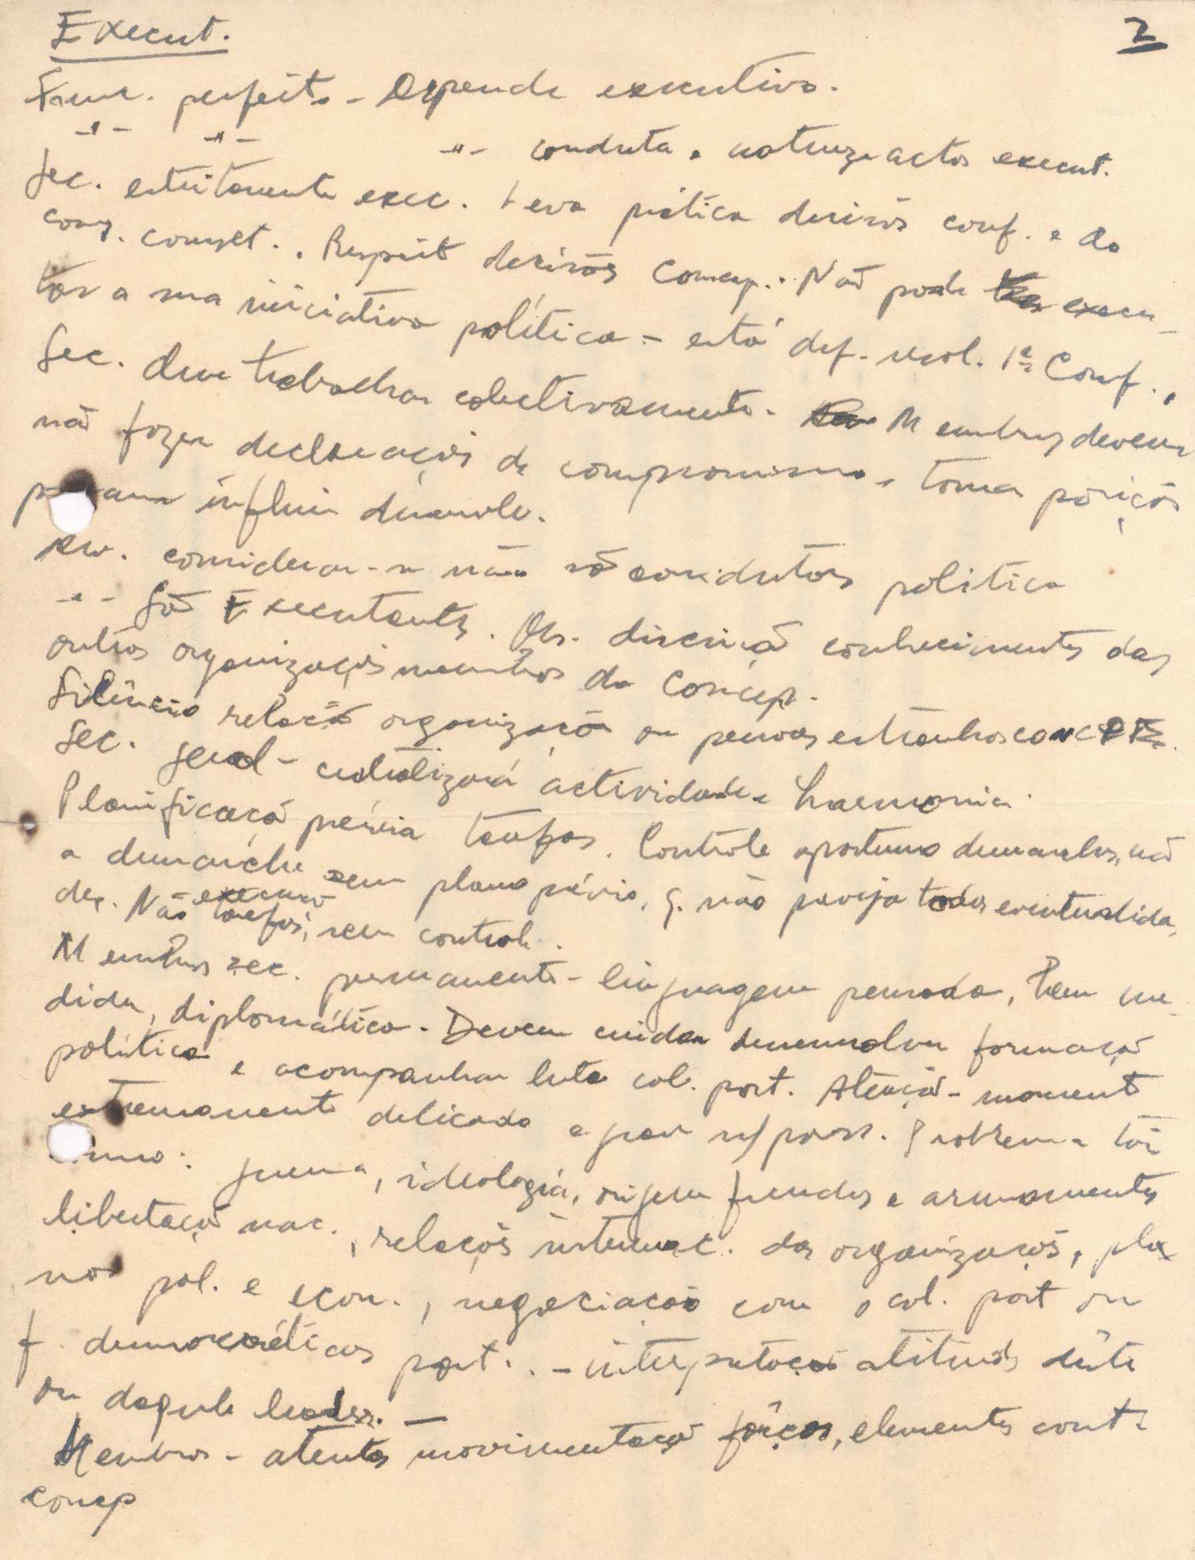 Execut.
2
Func. perfeito - Depende executivo.
-"- -"- -"- conduta e natureza actos execut.
Sec. estritamente exec. Leva prática decisões conf. e do
cons. consult.. Respeit decisões Concep.. Não pode execu-
tar a sua iniciativa política - está def. resol. 1ª Conf.,
Sec. deve trabalhar colectivamente. Membros devem
não fazer declarações de compromisso, tomar posições
possam influir desenvolv.
considerar-se não são condutores política
-"- São Executantes. Obs. discrição conhecimentos das
outras organizações membros da Concep.
Silêncio relação organização ou pessoas estranhas CONCP
Sec. geral - centralizará actividade e harmonia.
Planificação prévia tarefas. Controle oportuno demarches, não
a demarche sem plano prévio, q. não preveja todas eventualida,
des. Não execução tarefas, sem control.
Membros sec. permanente - linguagem pensada, bem me-
dida, diplomática. Devem cuidar desenvolver formação
política e acompanhar luta col. port. Atenção - moment
extremamente delicado e grav n/ process. Problema
: guerra, ideologia, origem fundos e armamentos
libertação nac., relações internac. das organizações, pla
nos pol. e econ., negociação com o col. port ou
f. democráticas port. - interpretação atitudes deste
ou daquele leader. -
Membros - atentos movimentação forças, elementos cont.
concp